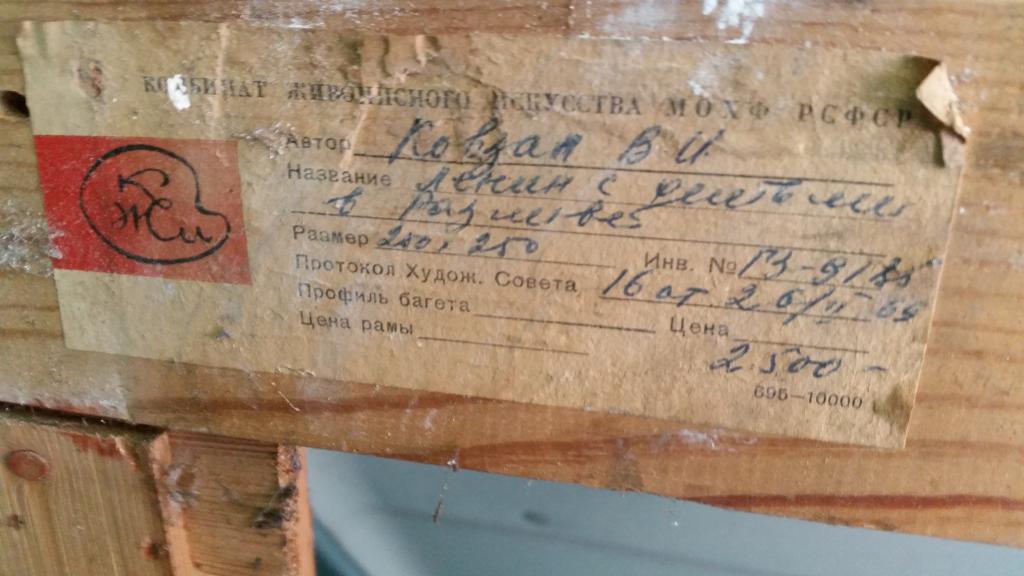 КОМБИНАТ ЖИВОПИСНОГО ИСКУССТВА МОХФ РСФСР
КЖИ
Автор Ковзан В И
Название Ленин с детьми
в Разливе
Размер 250 х 250 Инв. № ГЗ-9/85
Протокол Худож. Совета 16 от 26/II 69
Профиль багета Цена
2500 -
Цена рамы
695—10000